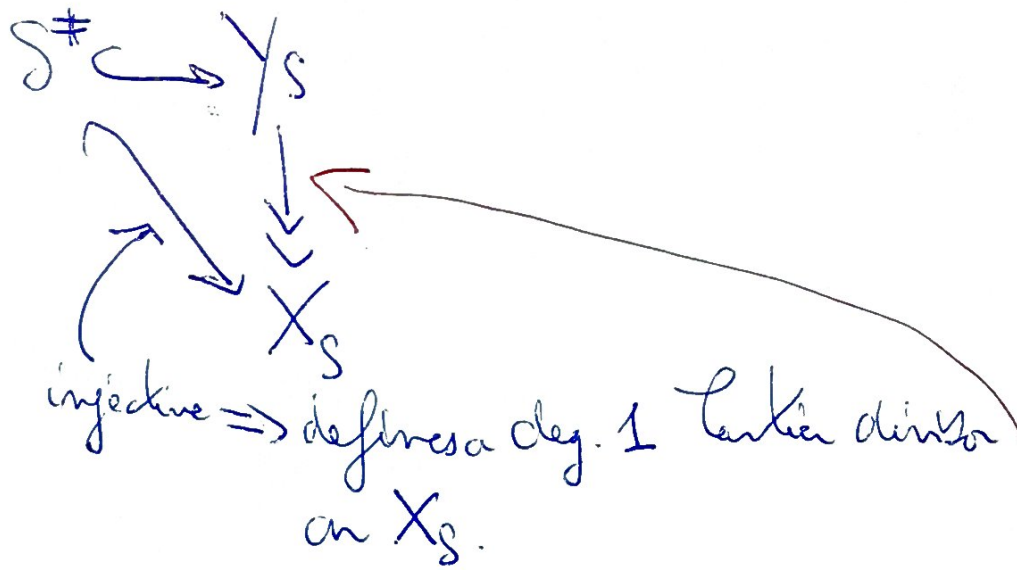 S^# ↪ Y_S
X_S
injective ⇒ defines a deg. 1 Cartier divisor
on X_S.